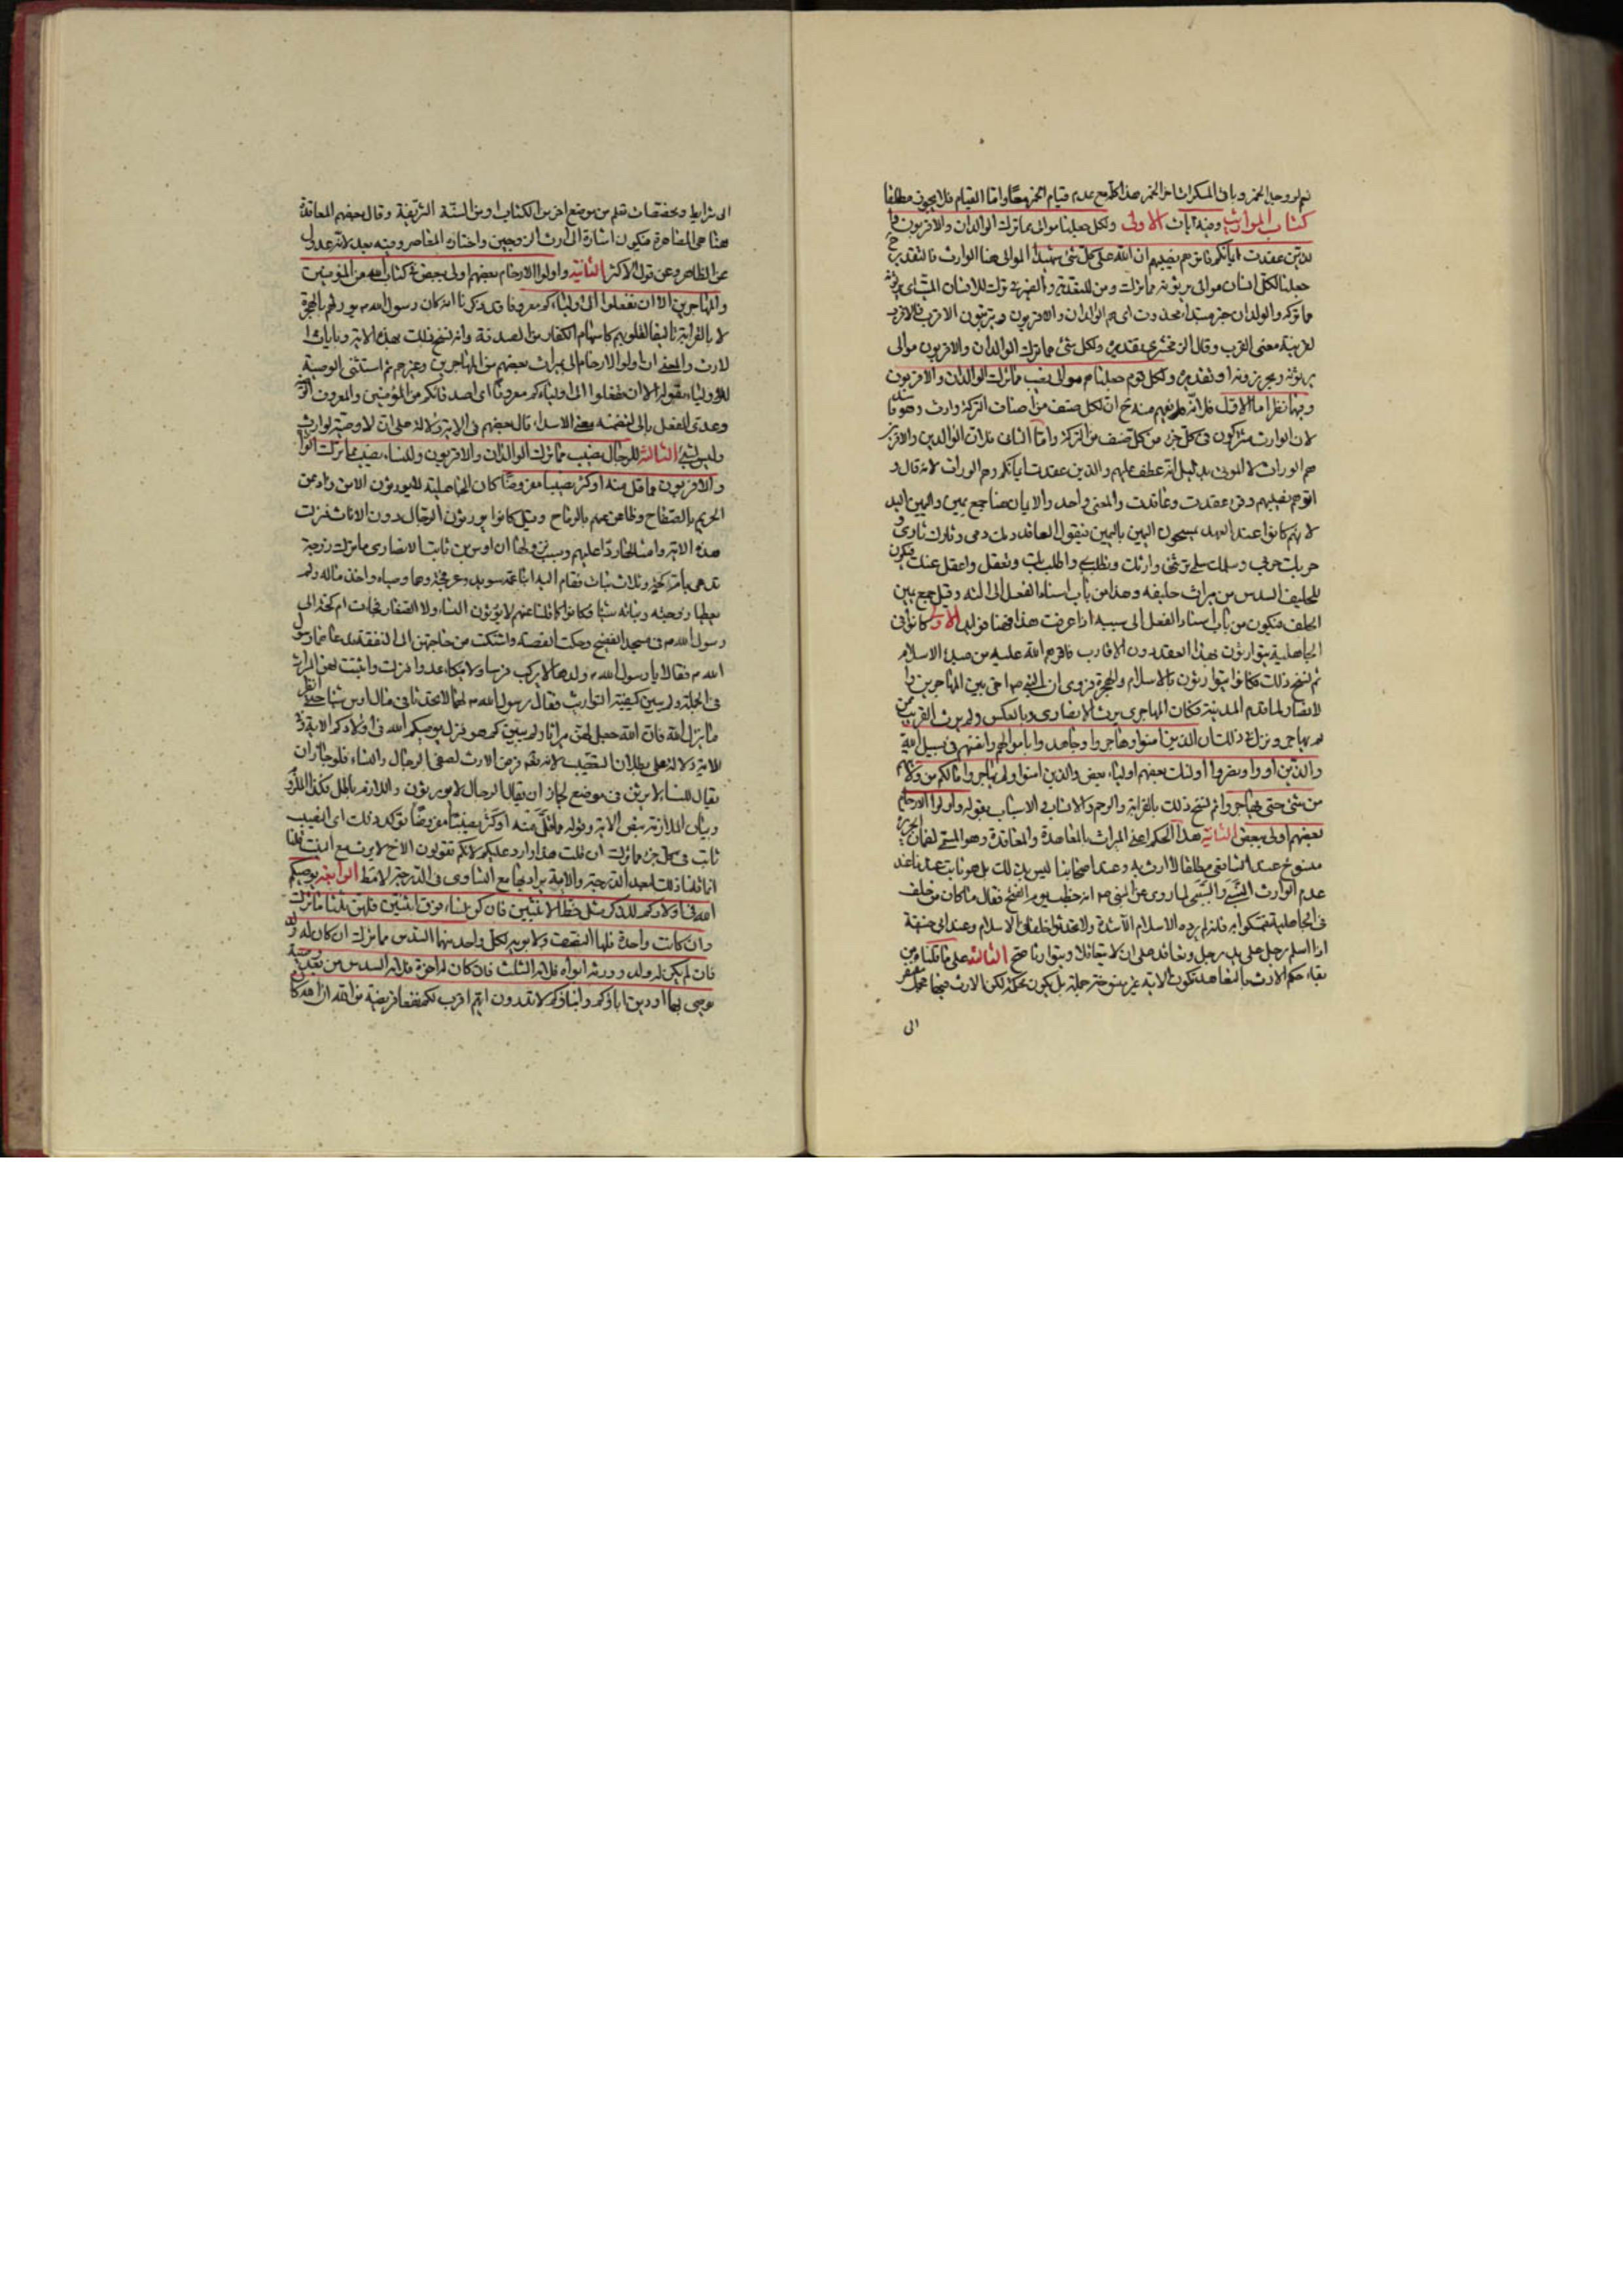 نعم لو وجد الخمر وباقی المسکرات اخر الخمر هذا کله مع عدم قیام الخمر مقامها واما القیام فلا یجوز مطلقا
کتاب المواریث وفیه آیات الاولی ولکل جعلنا موالی مما ترک الوالدان والاقربون وا
لذین عقدت ایمانکم فاتوهم نصیبهم ان الله علی کل شئ شهیدا الموالی هنا الوارث فالتقدیر
جعلنا لکل انسان موالی یرثونه مما ترک ومن للتعدیة والضمیر فی ترک للانسان المیت ای یرثونه
مما ترکه والوالدان خبر مبتدأ محذوف ای هم الوالدان والاقربون ویترتبون الاقرب فالاقرب
لقرینة معنی القرب وقال الزمخشری تقدیره ولکل شئ مما ترک الوالدان والاقربون موالی
یرثونه ویحرزونه او تقدیره ولکل قوم جعلناهم موالی نصیب مما ترک الوالدان والاقربون
وفیهما نظر اما الاول فلانه یفهم منه ح ان لکل صنف من اصناف الترکة وارث وهو فا سد
لان الوارث مشرکون فی کل جزء من کل صنف من الترکة واما الثانی فلان الوالدین والاقربین
هم الوراث لا الموتی بدلیل انه عطف علیهم والذین عقدت ایمانکم وهم الوراث لانه قال و
اتوهم نصیبهم وقرئ عقدت وعاقدت والمعنی واحد والایمان هنا جمع یمین والیمین الید
لانهم کانوا عند العهد یمسحون الیمین بالیمین فیقول العاقد دمک دمی وثارک ثاری و
حربک حربی وسلمک سلمی ترثنی وارثک وتطلب بی واطلب بک وتعقل عنی واعقل عنک فیکون
للحلیف السدس من میراث حلیفه وهذا من باب اسناد الفعل الی الته وقیل جمع یمین
الحلف فیکون من باب اسناد الفعل الی سببه اذا عرفت هذا فهنا فوائد الاولی کانوا فی
الجاهلیة یتوارثون بهذا العقد دون الاقارب فاقرهم الله علیه من صدر الاسلام
ثم نسخ ذلک فکانوا یتوارثون بالاسلام والهجرة فروی ان النبی ص اخی بین المهاجرین وا
لانصار لما قدم المدینة فکان المهاجری یرث الانصاری وبالعکس ولم یرث القریب ممن
لم یهاجر ونزل فی ذلک ان الذین امنوا وهاجروا وجاهدوا باموالهم وانفسهم فی سبیل الله
والذین اووا ونصروا اولئک بعضهم اولیاء بعض والذین امنوا ولم یهاجروا مالکم من ولایتهم
من شئ حتی یهاجروا ثم نسخ ذلک بالقرابة والرحم والانساب والاسباب بقوله واولوا الارحام
بعضهم اولی ببعض الثانیة هذا الحکم اعنی المیراث بالمعاهدة والمعاقدة وهو المسمی لضمان الجریرة
منسوخ عند الشافعی مطلقا لا ارث به وعند اصحابنا لیس بذلک بل هو ثابت عند ناعند
عدم الوارث النسبی والسببی لما روی عن النبی ص انه خطب یوم الفتح فقال ما کان من حلف
فی الجاهلیة فتمسکوا به فانه لم یزده الاسلام الا شدة ولا تحدثوا حلفا فی الاسلام وعند ابی حنیفة
اذا اسلم رجل علی ید رجل وتعاقدا علی ان یتعاقلا ویتوارثا صح الثالثة علی ما قلناه من
بقاء حکم الارث بالمعاهدة تکون الایة غیر منسوخة جملة بل یکون محکمة لکن الارث فیها مجمل مفتقر
الی
الی شرایط ومخصصات تعلم من موضع اخر من الکتاب او من السنة الشریفة وقال بعضهم المعاقدة
هنا هی المصاهرة فیکون اشارة الی ارث الزوجین واختاره المعاصر وفیه بعد لانه عدول
عن الظاهر وعن قول الاکثر الثانیة واولوا الارحام بعضهم اولی ببعض فی کتاب الله من المؤمنین
والمهاجرین الا ان تفعلوا الی اولیائکم معروفا قد ذکرنا انه کان رسول الله ص یورثهم بالهجرة
لا بالقرابة تالیفا لقلوبهم کاسهام الکفار من الصدقة وانه نسخ ذلک بهذه الایة وبایات ا
لارث والمعنی ان اولوا الارحام الی میراث بعضهم من المهاجرین وغیرهم ثم استثنی الوصیة
للاولیاء بقوله الا ان تفعلوا الی اولیائکم معروفا ای اصدقائکم من المؤمنین والمعروف الوصیة
وعدی الفعل بالی لتضمنه معنی الاسداء قال بعضهم فی الایة دلالة علی ان لا وصیة لوارث
ولیس بشئ الثالثة للرجال نصیب مما ترک الوالدان والاقربون وللنساء نصیب مما ترک الوالدان
والاقربون مما قل منه او کثر نصیبا مفروضا کان الجاهلیة لا یورثون الا من ذاد عن
الحریم بالصفاح وطاعن عنهم بالرماح وقیل کانوا یورثون الرجال دون الاناث فنزلت
هذه الایة وامثالها ردا علیهم وسبب نزولها ان اوس بن ثابت الانصاری مات وترک زوجة
تدعی بام کحة وثلاث بنات فقام الیها ابنا عمه سوید وعرفجة وهما وصیاه واخذا ماله ولم
یعطیا زوجته وبناته شیئا وکانوا کما قلنا عنهم لا یورثون النساء ولا الصغار فجاءت ام کحة الی
رسول الله ص فی مسجد الفضیح وحکت القصة واشتکت من حاجتهن الی النفقة فدعاهما رسول
الله ص فقالا یا رسول الله ص ولدها لا یرکب فرسا ولا ینکاء عدوا فنزلت واثبتت لهن المیراث
فی الجملة ولم یبین کیفیة التوارث فقال رسول الله ص لهما لا تحدثا فی مال اوس شیئا حتی انظر
ما ینزل الله فان الله جعل لهن میراثا ولم یبین کم هو فنزل یوصیکم الله فی اولادکم الایة وفی
الایة دلالة علی بطلان التعصیب لانه تعم فرض الارث لصنفی الرجال والنساء فلو جاز ان
یقال للنساء لا یرثن فی موضع لجاز ان یقال الرجال لا یورثون واللازم باطل فکذا الملزوم
وبیان اللازمة بنص الایة وقوله مما قل منه او کثر نصیبا مفروضا توکید ذلک ای النصیب
ثابت فی کل جزء مما ترک ان قلت هذا وارد علیکم لانکم تقولون الاخ لا یرث مع البنت قلنا
انما قلنا ذلک لبعد الدرجة والایة یراد بها مع التساوی فی الدرجة لا مط الرابعة یوصیکم
الله فی اولادکم للذکر مثل حظ الانثیین فان کن نساء فوق اثنتین فلهن ثلثا ما ترک
وان کانت واحدة فلها النصف ولابویه لکل واحد منهما السدس مما ترک ان کان له ولد
فان لم یکن له ولد وورثه ابواه فلامه الثلث فان کان له اخوة فلامه السدس من بعد وصیة
یوصی بها او دین اباؤکم وابناؤکم لا تدرون ایهم اقرب لکم نفعا فریضة من الله ان الله کا